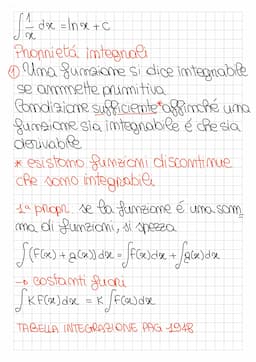 ∫ 1/x dx = ln x + C
Proprietà integrali
① Una funzione si dice integrabile
se ammette primitiva
Condizione sufficiente* affinché una
funzione sia integrabile é che sia
derivabile
* esistono funzioni discontinue
che sono integrabili
1ª propr. se la funzione é una som
ma di funzioni, si spezza
∫(F(x) + g(x)) dx = ∫f(x)dx + ∫g(x)dx
→ costanti fuori
∫ K F(x) dx = K ∫ F(x) dx
TABELLA INTEGRAZIONE PAG 1918